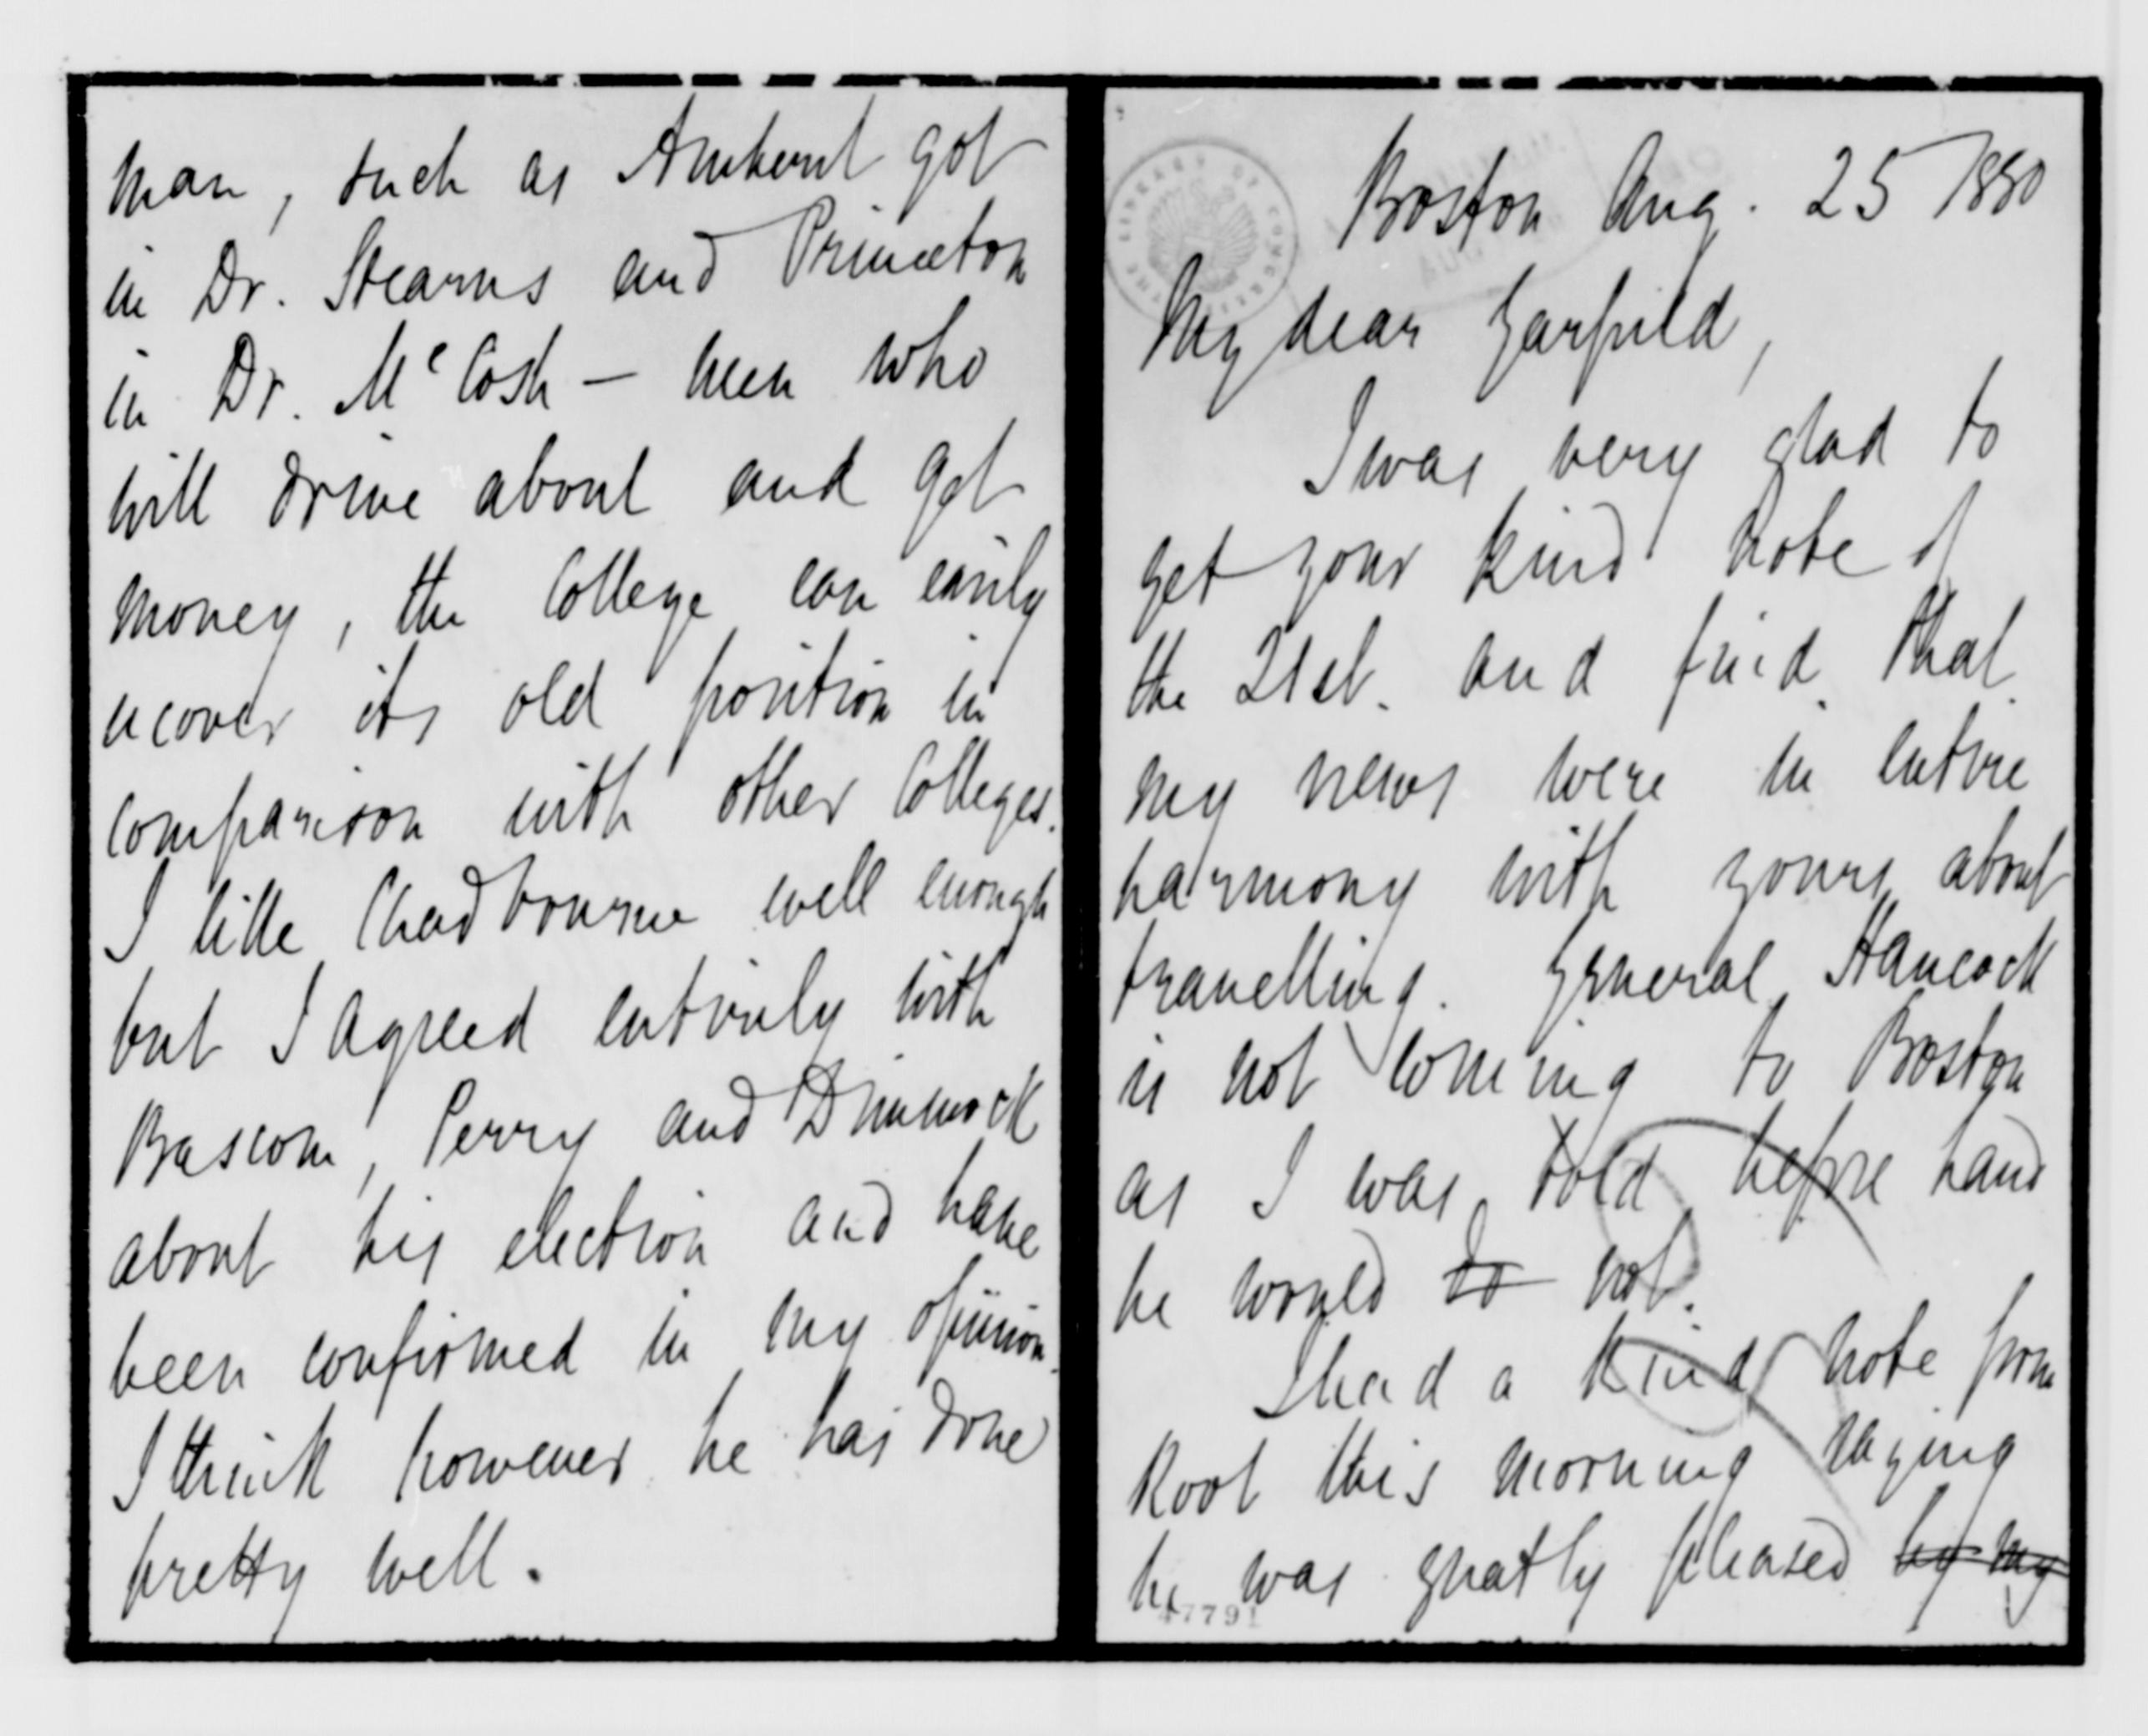 Boston Aug. 25 1880
My dear Garfield,
I was very glad to
get your kind note of
the 21st. and find that
my views were in entire
harmony with yours about
travelling. General Hancock
is not coming to Boston
as I was told before hand
he would do not.
I had a kind note from
Root this morning saying
he was greatly pleased by my
47791
man, such as Amherst got
in Dr. Stearns and Princeton
in Dr. McCosh — men who
will drive about and get
money, the College can easily
recover its old position in
comparison with other Colleges.
I like Chadbourne well enough
but I agreed entirely with
Bascom, Perry and Dimmock
about his election and have
been confirmed in my opinion.
I think however he has done
pretty well.